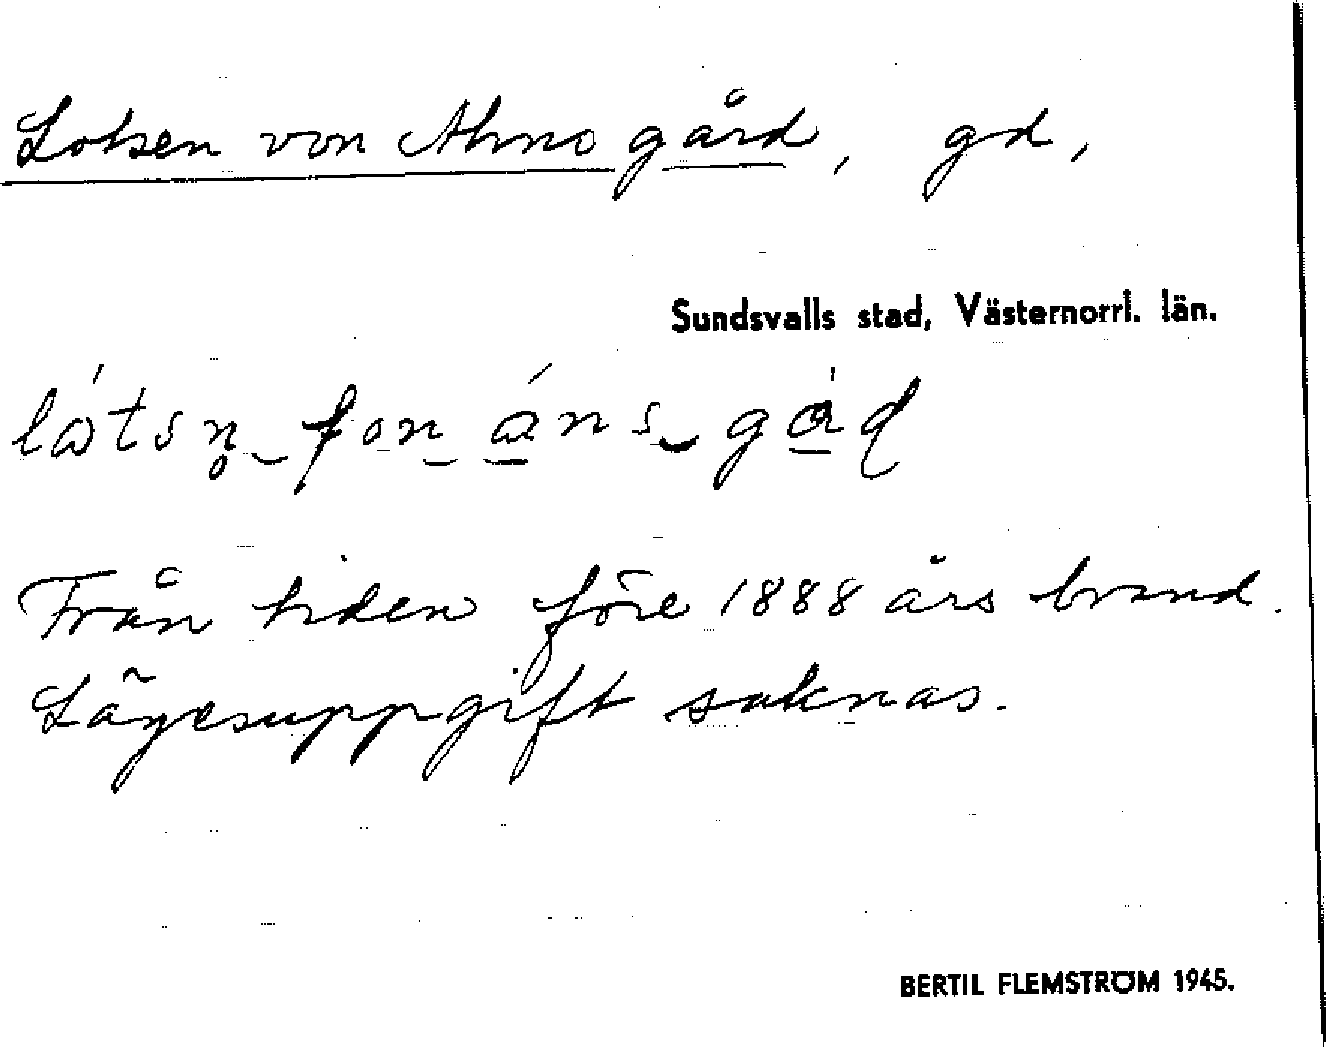 Lotsen von Ahns gård, gd,
Sundsvalls stad, Västernorrl. län.
låtsn̥ fon áns gåd
Från tiden före 1888 års brand.
Lägesuppgift saknas.
BERTIL FLEMSTRÖM 1945.